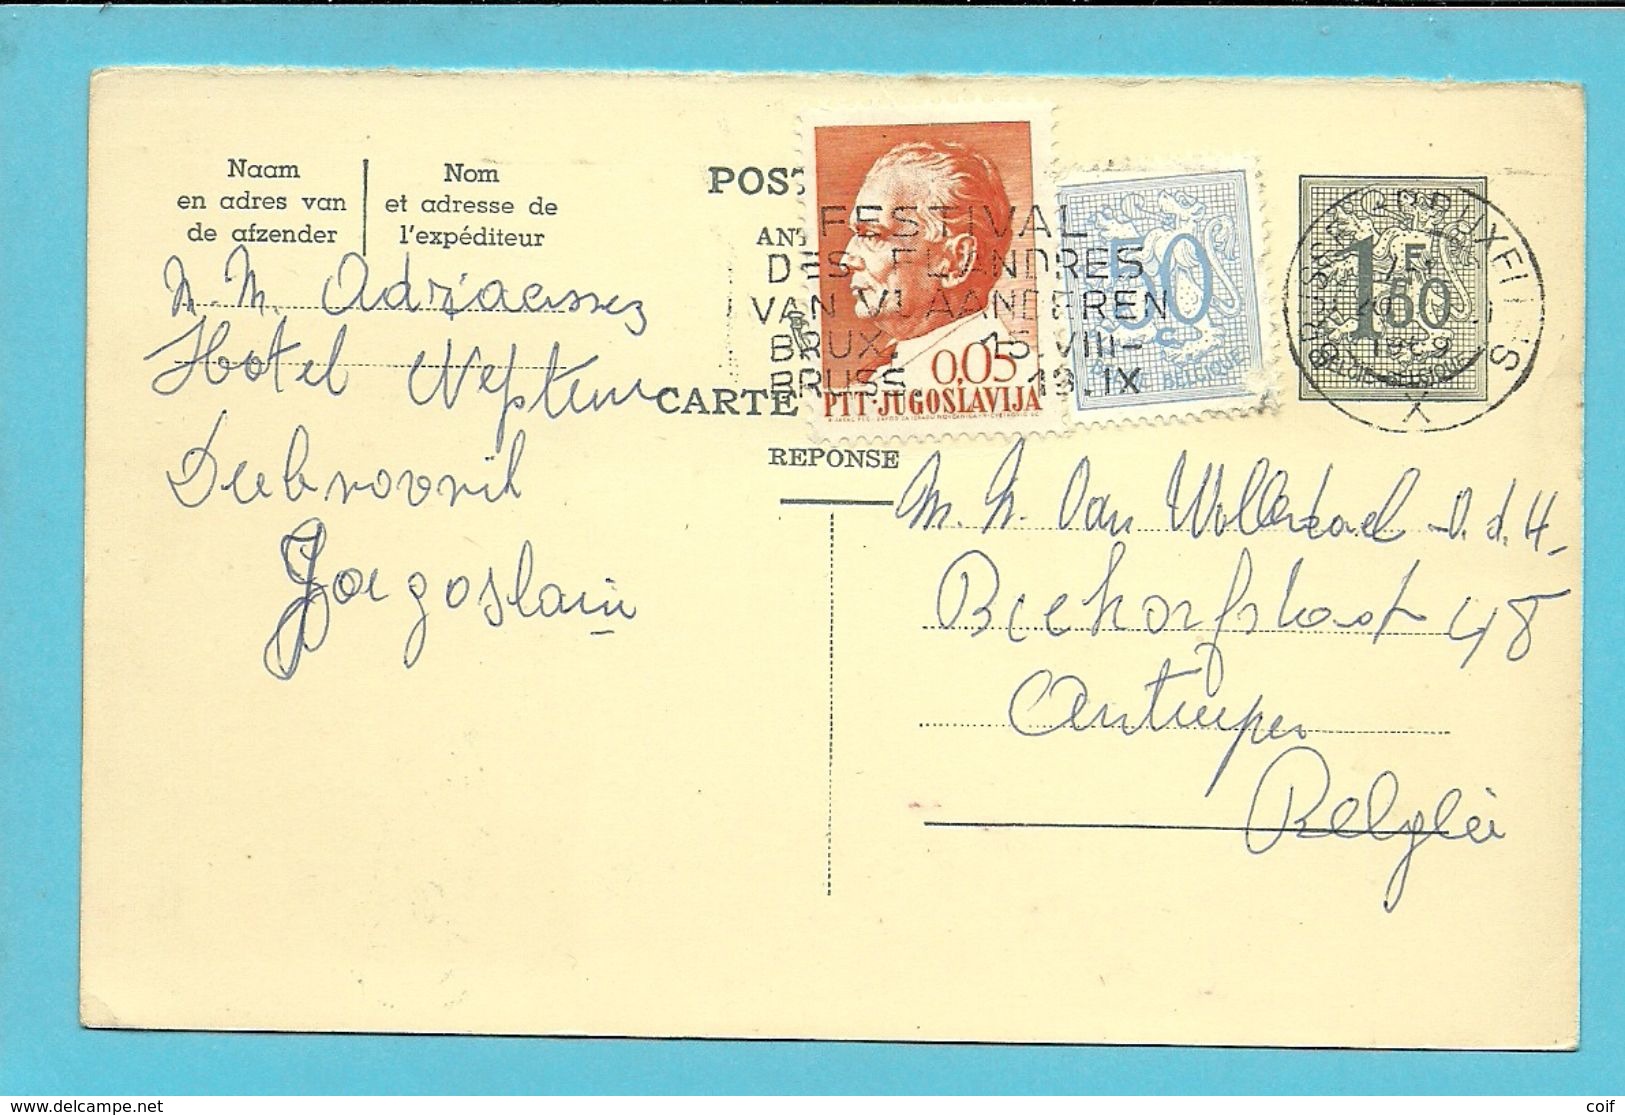 Naam
en adres van
de afzender
Nom
et adresse de
l'expéditeur
M. M. Adriaenssez
Hotel Neptun
Dubrovnik
Joegoslavië
POS
ANT
CARTE
REPONSE
FESTIVAL
DES FLANDRES
VAN VLAANDEREN
BRUX. 15.VIII-
BRUSS. 19.IX
0,05
PTT·JUGOSLAVIJA
50
BELGIQUE
1F
50
BELGIE-BELGIQUE
BRUSSEL BRUXELLES
1969
X
M. M. Van v.d.H.
Biekorfstraat 48
Antwerpen
België
https://www.delcampe.net
coif